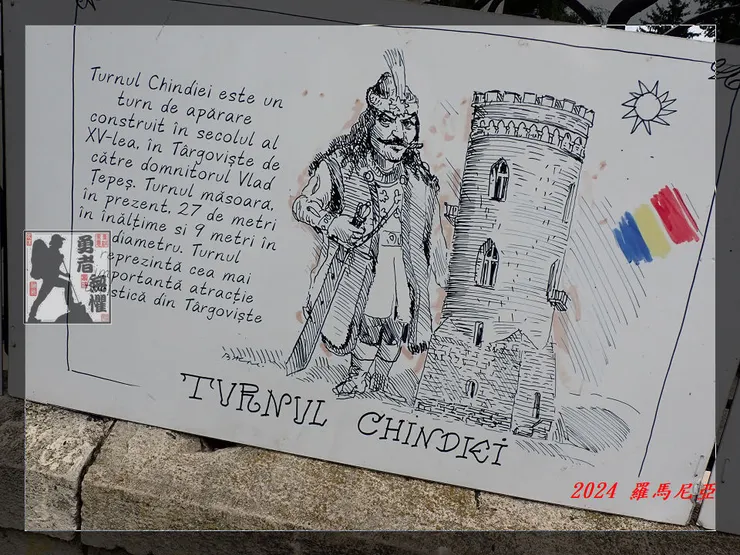 Turnul Chindiei este un
turn de apărare
construit în secolul al
XV-lea, în Târgoviște de
către domnitorul Vlad
Țepeș. Turnul măsoara,
în prezent, 27 de metri
în înălțime si 9 metri în
diametru. Turnul
reprezintă cea mai
portantă atracție
stică din Târgoviște
TURNUL CHINDIEI
勇者無懼
2024 羅馬尼亞